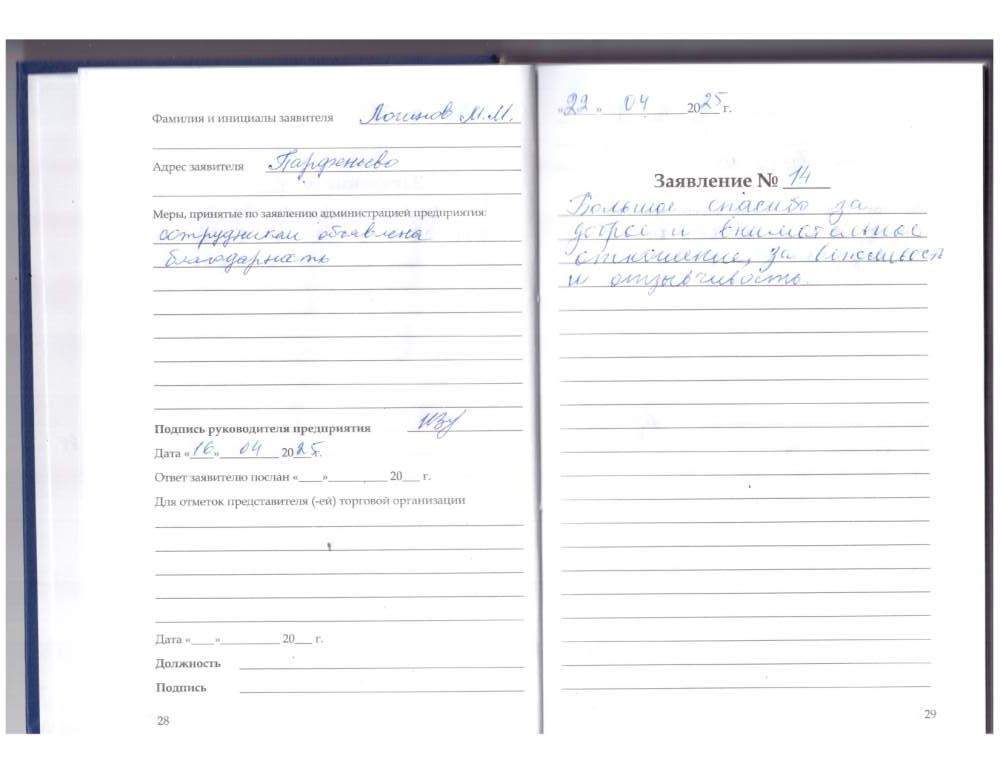 Фамилия и инициалы заявителя Логинов М.М.
Адрес заявителя Парфеньево
Меры, принятые по заявлению администрацией предприятия:
сотрудникам объявлена
благодарность
Подпись руководителя предприятия
Дата «16» 04 2025г.
Ответ заявителю послан «___»__________ 20___ г.
Для отметок представителя (-ей) торговой организации
Дата «____»__________ 20___ г.
Должность
Подпись
28
«22» 04 2025г.
Заявление № 14
Большое спасибо за
доброе и внимательное
отношение, за
и отзывчивость.
29